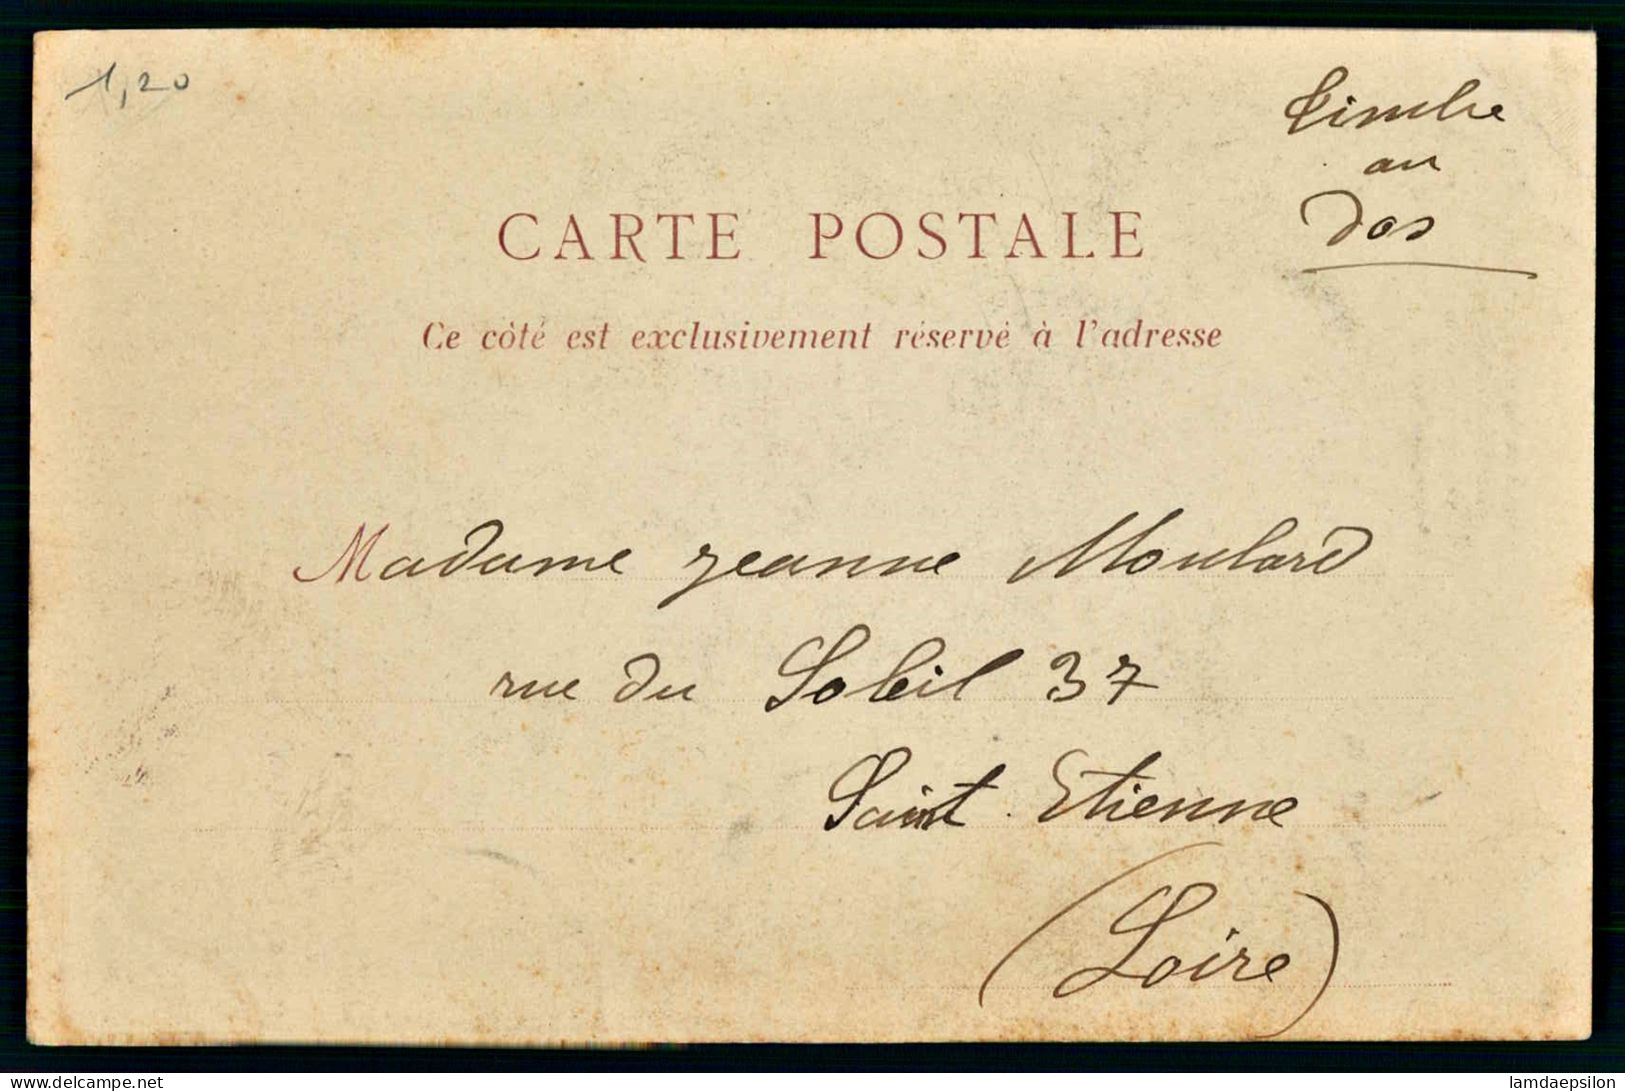 1,20
Timbre
au
Dos
CARTE POSTALE
Ce côté est exclusivement réservé à l'adresse
Madame Jeanne Moulard
rue du Soleil 37
Saint Etienne
(Loire)
the-postcard.delcampe.net
lamdaepsilon